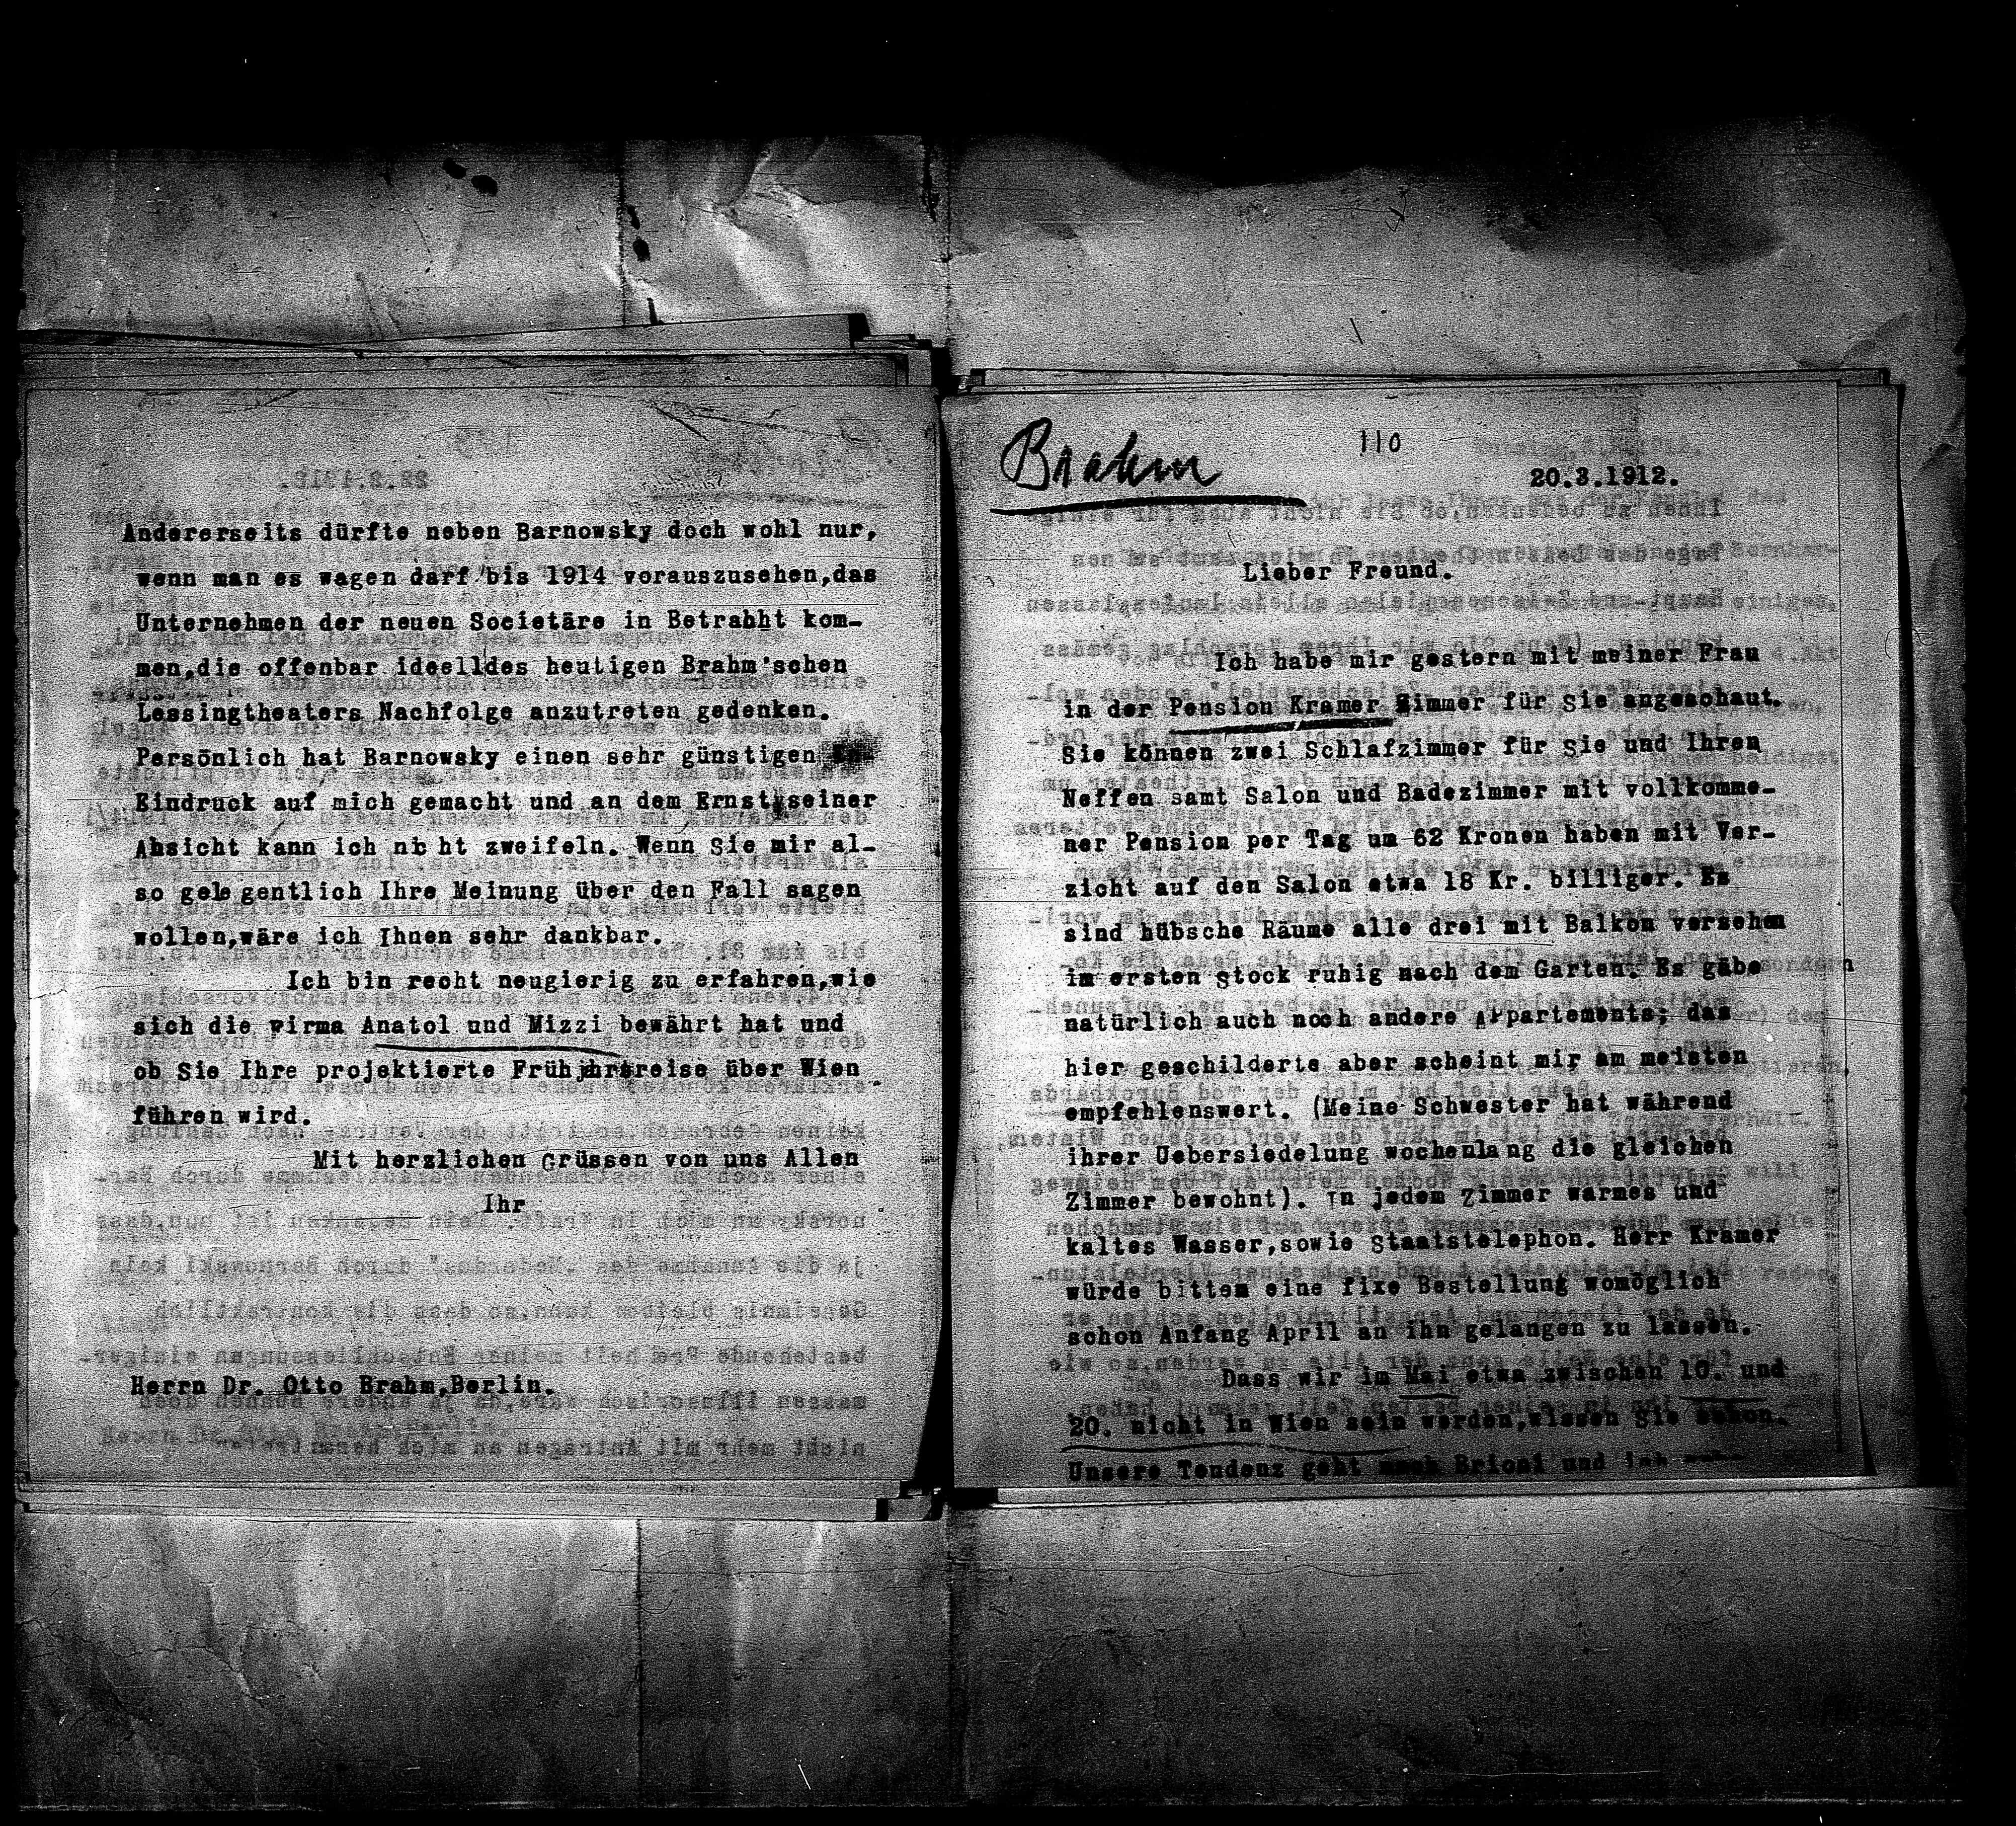 Andererseits dürfte neben Barnowsky doch wohl nur,
wenn man es wagen darf bis 1914 vorauszusehen,das
Unternehmen der neuen Societäre in Betrabht kom-
men,die offenbar ideelldes heutigen Brahm'schen
Lessingtheaters Nachfolge anzutreten gedenken.
Persönlich hat Barnowsky einen sehr günstigen
Eindruck auf mich gemacht und an dem Ernst seiner
Absicht kann ich nicht zweifeln. Wenn Sie mir al-
so gelegentlich Ihre Meinung über den Fall sagen
wollen,wäre ich Ihnen sehr dankbar.
Ich bin recht neugierig zu erfahren,wie
sich die Firma Anatol und Mizzi bewährt hat und
ob Sie Ihre projektierte Frühjahrsreise über Wien
führen wird.
Mit herzlichen Grüssen von uns Allen
Ihr
Herrn Dr. Otto Brahm,Berlin.
Brahm
110
20.3.1912.
Lieber Freund.
Ich habe mir gestern mit meiner Frau
in der Pension Kramer Zimmer für Sie angeschaut.
Sie können zwei Schlafzimmer für Sie und Ihren
Neffen samt Salon und Badezimmer mit vollkomme-
ner Pension per Tag um 62 Kronen haben mit Ver-
zicht auf den Salon etwa 18 Kr. billiger. Es
sind hübsche Räume alle drei mit Balkon versehen
im ersten Stock ruhig nach dem Garten. Es gäbe
natürlich auch noch andere Appartements; das
hier geschilderte aber scheint mir am meisten
empfehlenswert. (Meine Schwester hat während
ihrer Uebersiedelung wochenlang die gleichen
Zimmer bewohnt). In jedem Zimmer warmes und
kaltes Wasser,sowie Staatstelephon. Herr Kramer
würde bitten eine fixe Bestellung womöglich
schon Anfang April an ihn gelangen zu lassen.
Dass wir im Mai etwa zwischen 10. und
20. nicht in Wien sein werden,wissen Sie schon.
Unsere Tendenz geht nach Brioni und ich